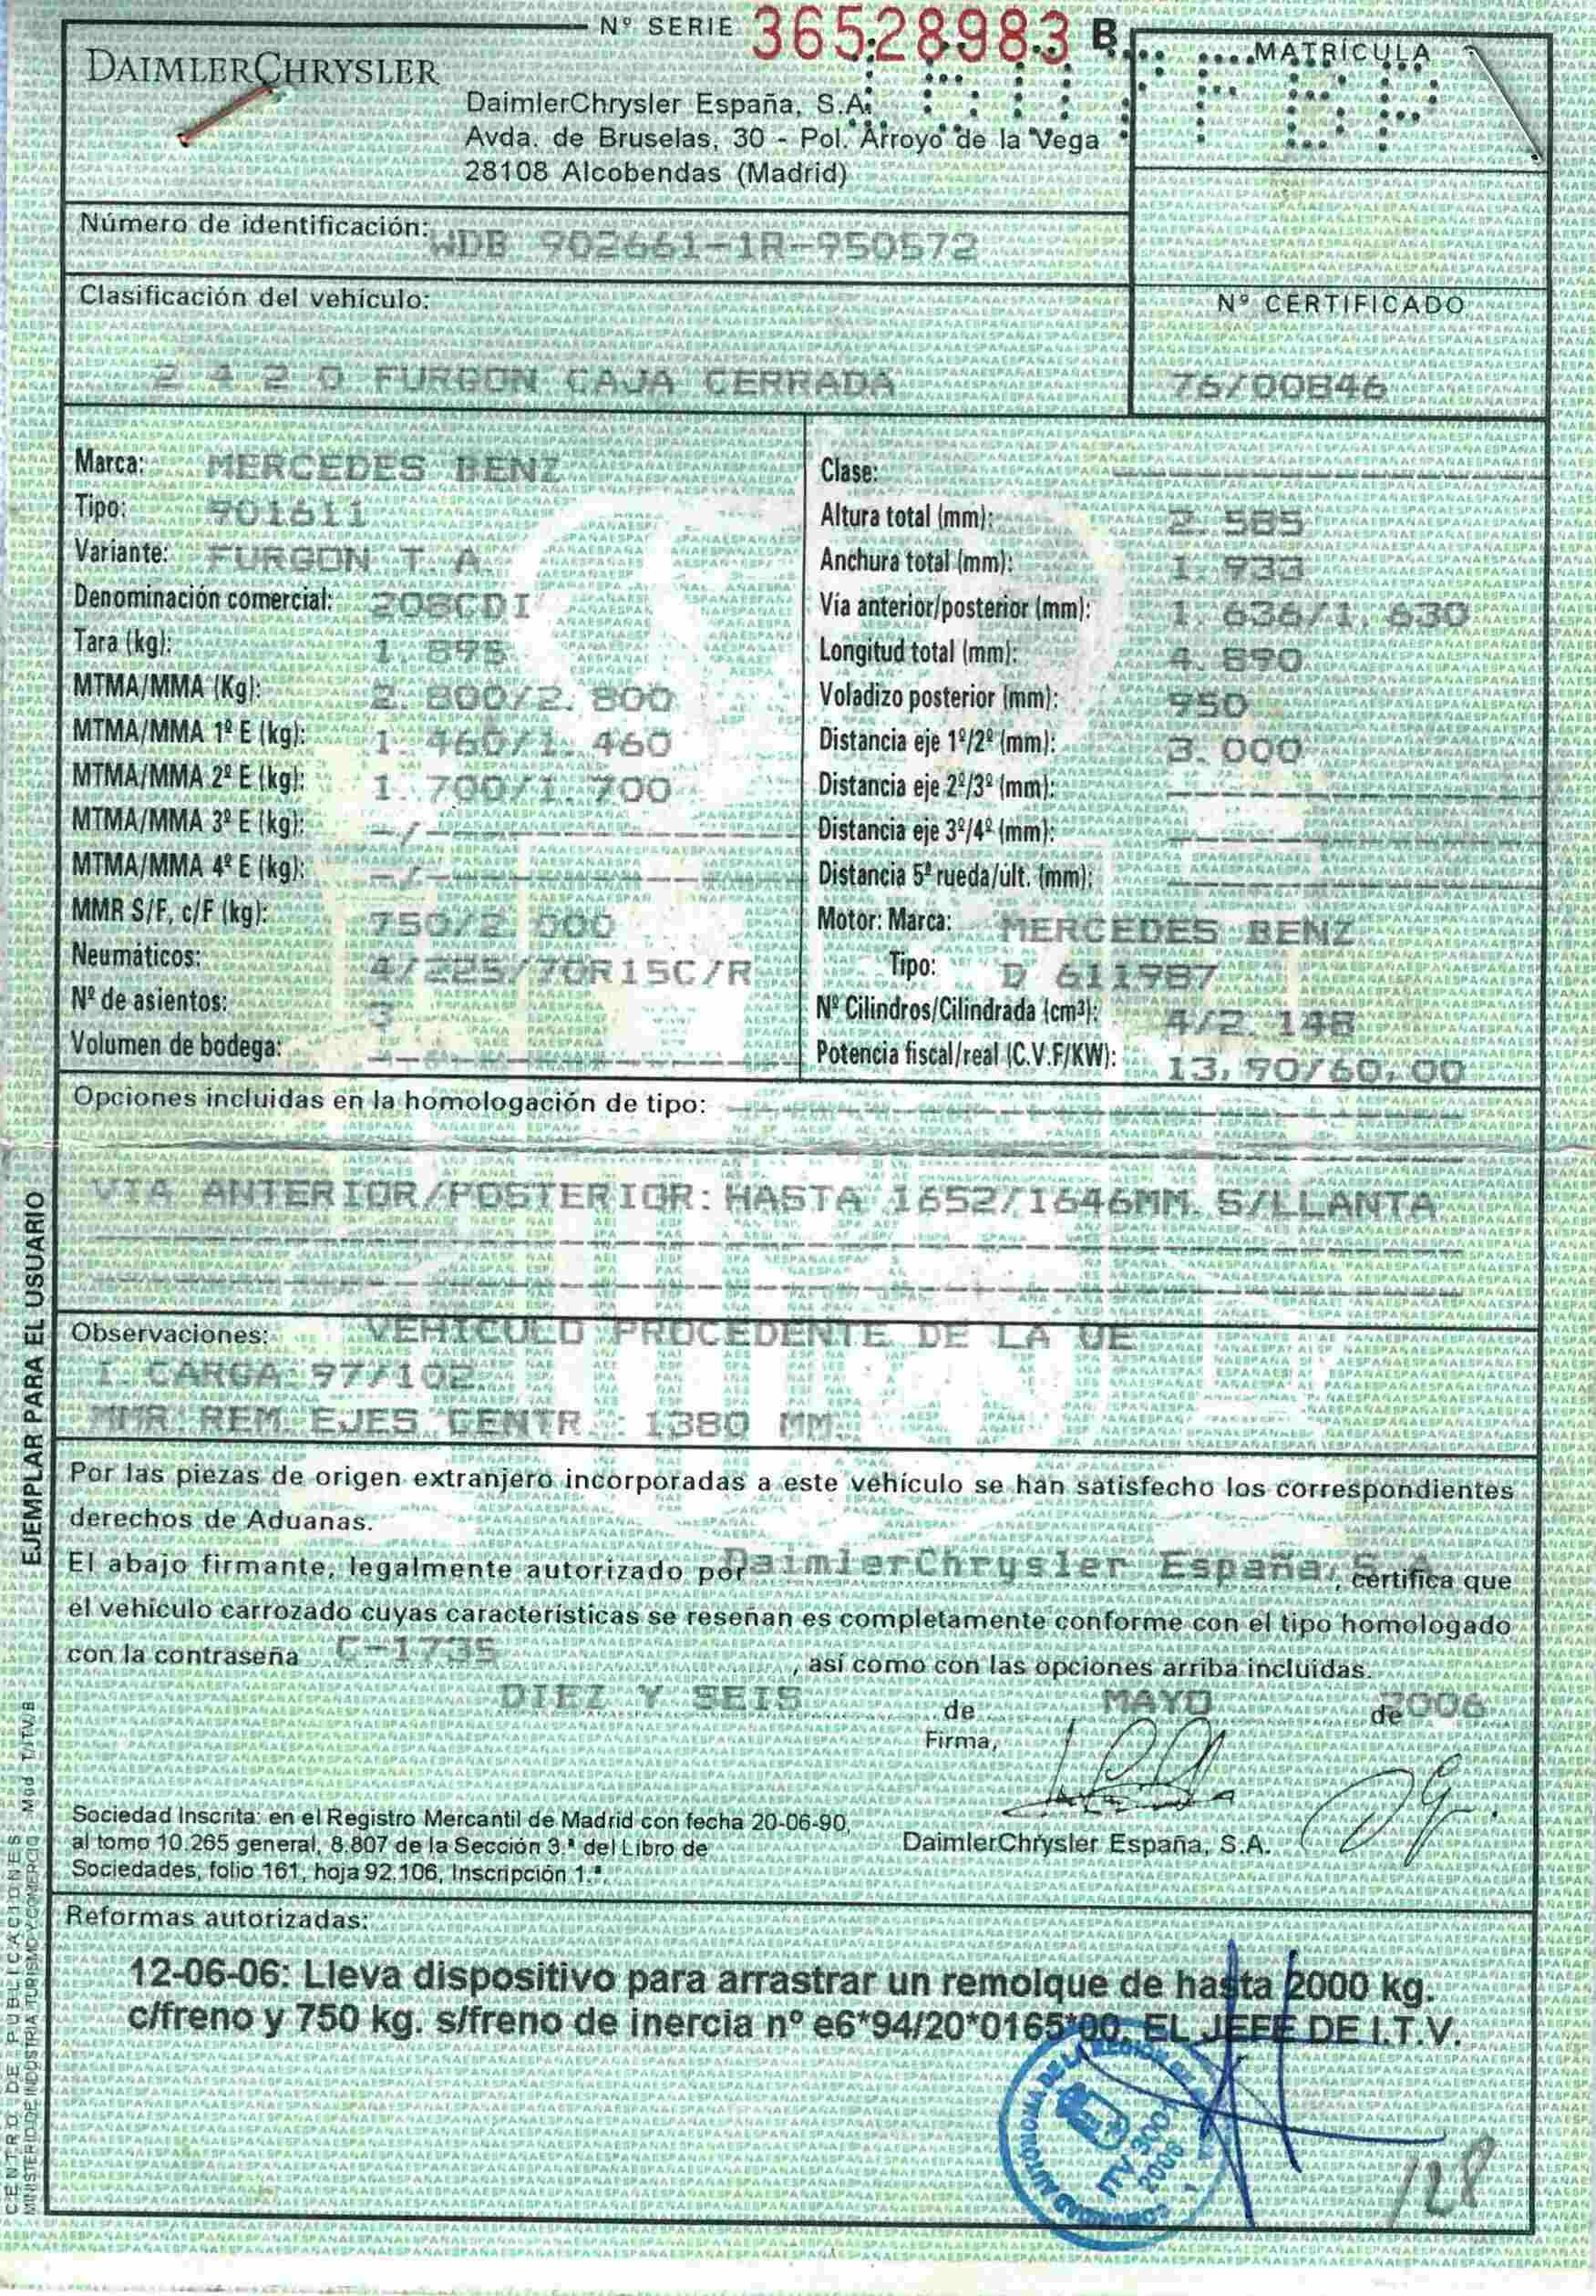 Nº SERIE 36528983 B
MATRÍCULA
DAIMLERCHRYSLER
DaimlerChrysler España, S.A.
Avda. de Bruselas, 30 - Pol. Arroyo de la Vega
28108 Alcobendas (Madrid)
Número de identificación: WDB 902661-1R-950572
Clasificación del vehículo:
2 4 2 0 FURGON CAJA CERRADA
Nº CERTIFICADO
76/00846
Marca: MERCEDES BENZ
Tipo: 901611
Variante: FURGON T. A.
Denominación comercial: 208CDI
Tara (kg): 1. 895
MTMA/MMA (Kg): 2. 800/2. 800
MTMA/MMA 1º E (kg): 1. 460/1. 460
MTMA/MMA 2º E (kg): 1. 700/1. 700
MTMA/MMA 3º E (kg): -/-
MTMA/MMA 4º E (kg): -/-
MMR S/F, c/F (kg): 750/2. 000
Neumáticos: 4/225/70R15C/R
Nº de asientos: 3
Volumen de bodega:
Clase:
Altura total (mm): 2. 585
Anchura total (mm): 1. 933
Vía anterior/posterior (mm): 1. 636/1. 630
Longitud total (mm): 4. 890
Voladizo posterior (mm): 950
Distancia eje 1º/2º (mm): 3. 000
Distancia eje 2º/3º (mm):
Distancia eje 3º/4º (mm):
Distancia 5ª rueda/ult. (mm):
Motor: Marca: MERCEDES BENZ
Tipo: D 611987
Nº Cilindros/Cilindrada (cm³): 4/2. 148
Potencia fiscal/real (C.V.F/KW): 13, 90/60, 00
Opciones incluidas en la homologación de tipo:
VIA ANTERIOR/POSTERIOR: HASTA 1652/1646MM. S/LLANTA
Observaciones: VEHICULO PROCEDENTE DE LA UE
I. CARGA: 97/102
MMR REM. EJES CENTR. : 1380 MM.
Por las piezas de origen extranjero incorporadas a este vehículo se han satisfecho los correspondientes
derechos de Aduanas.
El abajo firmante, legalmente autorizado por DaimlerChrysler España, S.A., certifica que
el vehículo carrozado cuyas características se reseñan es completamente conforme con el tipo homologado
con la contraseña C-1735, así como con las opciones arriba incluidas.
DIEZ Y SEIS de MAYO de 2006
Firma,
DaimlerChrysler España, S.A.
Sociedad Inscrita: en el Registro Mercantil de Madrid con fecha 20-06-90,
al tomo 10.265 general, 8.807 de la Sección 3.ª del Libro de
Sociedades, folio 161, hoja 92.106, Inscripción 1.ª.
Reformas autorizadas:
12-06-06: Lleva dispositivo para arrastrar un remolque de hasta 2000 kg.
c/freno y 750 kg. s/freno de inercia nº e6*94/20*0165*00. EL JEFE DE I.T.V.
ITV 3001
2006
128
EJEMPLAR PARA EL USUARIO
CENTRO DE PUBLICACIONES
MINISTERIO DE INDUSTRIA, TURISMO Y COMERCIO